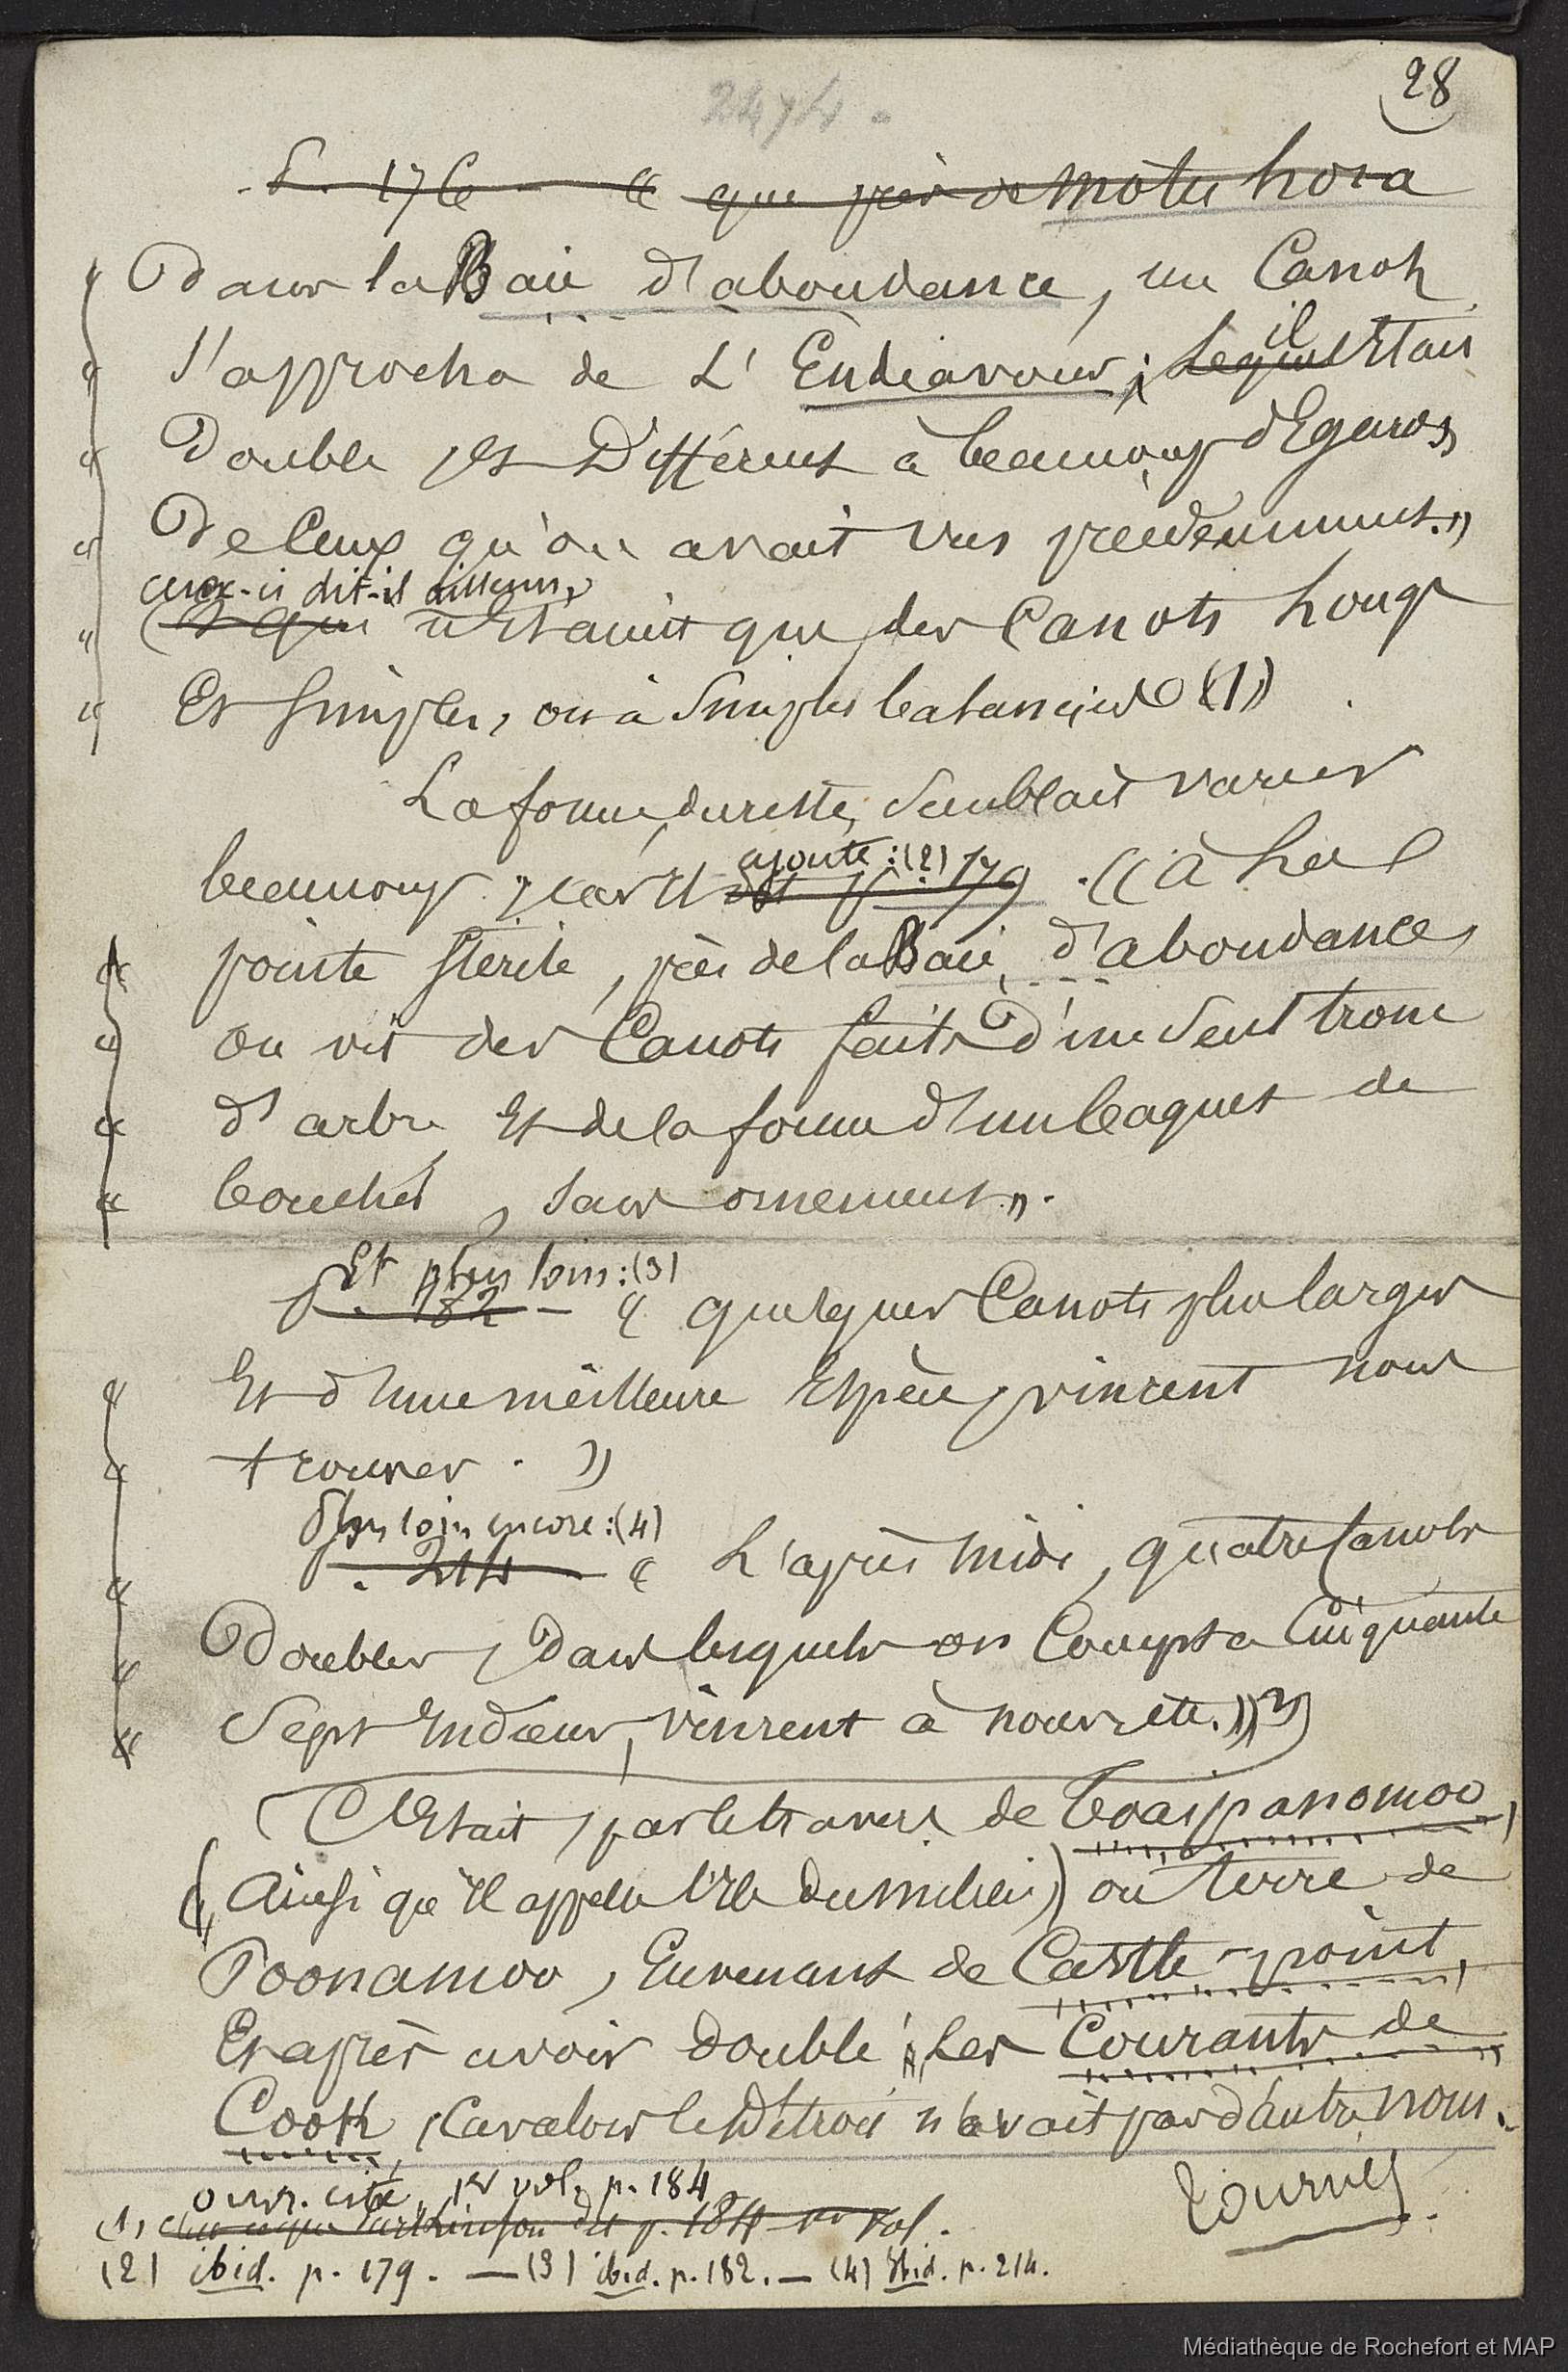 28
2474.
P. 176 - « que près de Motu hora
Dans la Baie d'abondance, un Canot
« s'approcha de L'Endeavour ; lequel il Etait
« Double, et Différent à beaucoup d'Egards,
« De Ceux qu'on avait vus précédemment. »
ceux-ci dit-il ailleurs,
« (Et qui n'Etaient que des Canots Longs
« Et simples, ou à simples balanciers (1) »
La forme, du reste, semblait varier
ajoute : (2)
beaucoup ; car il dit p. 179. « à La
« pointe stérile, près de la Baie d'abondance,
« on vit des Canots faits d'un seul tronc
« d'arbre et de la forme d'un baquet de
« boucher, sans ornement. »
Et plus loin : (3)
P. 182 - « quelques Canots plus larges
« Et d'une meilleure Espèce, vinrent nous
« trouver. »
Plus loin encore : (4)
P. 214 - « L'après midi, quatre Canots
« Doubles, Dans lesquels on Compta Cinquante
« Sept Indiens, vinrent à nouveau. »
(C'Etait par le travers de Toaipanomoo,
(Ainsi qu'il appelle l'Ile du milieu) ou terre de
Poonamoo, En venant de Castle-point,
Et après avoir doublé, Les Courants de
Cook, Car alors le Détroit n'avait pas d'autre nom.
tournez
ouvr. cité, 1er vol. p. 184
(1) Parkinson dit p. 184 1er vol.
(2) ibid. p. 179. — (3) ibid. p. 182. — (4) Ibid. p. 214.
Médiathèque de Rochefort et MAP